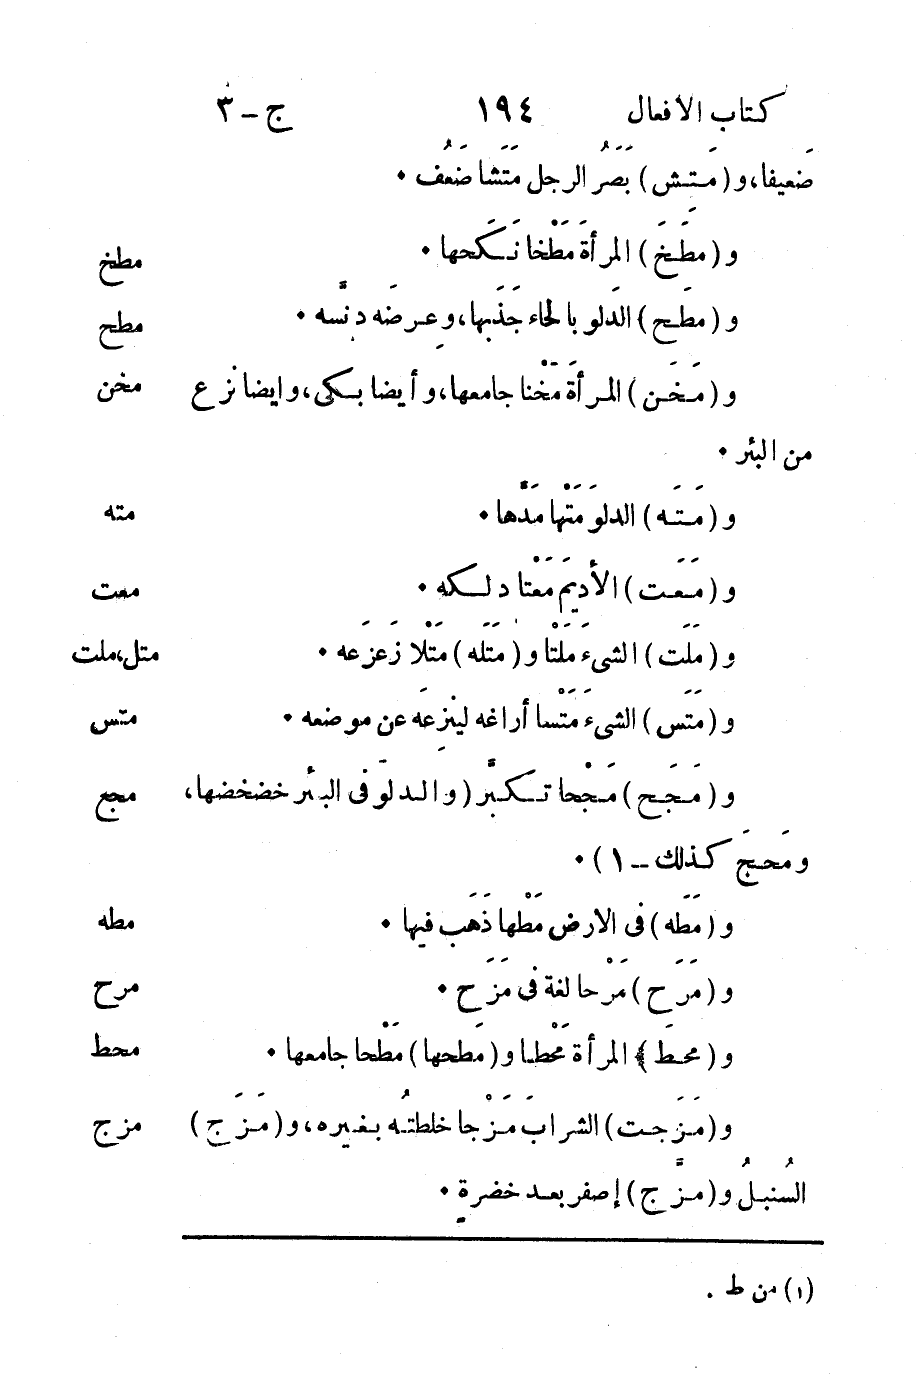 كتاب الافعال ١٩٤ ج - ٣
ضَعيفا، و (مَتِش) بَصَرُ الرجل مَتَشا ضَعُف ٠
و (مطَخَ) المرأة مَطْخا نَكَحها ٠ مطخ
و (مطَح) الدَلو بالحاء جَذَبها، وعِرضَه دنّسه ٠ مطح
و (مَخَن) المرأة مَخْنا جامعها، وأيضا بكى، وايضا نزع مخن
من البئر ٠
و (مَتَه) الدلوَ مَتْها مَدّها ٠ مته
و (مَعَت) الأديمَ مَعْتا دلكه ٠ معت
و (مَلَت) الشىءَ مَلْتا و (مَتَله) مَتْلا زَعزَعه ٠ متل، ملت
و (مَتَس) الشىءَ مَتْسا أراغه لينزِعَه عن موضعه ٠ متس
و (مَجَح) مَجْحا تكبّر (والدلوَ فى البئر خضخضها، مجح
ومَحجَ كذلك - ١) ٠
و (مَطَه) فى الارض مَطْها ذَهَب فيها ٠ مطه
و (مَرَح) مَرْحا لغة فى مَزَح ٠ مرح
و (محطَ) المرأة مَحْطا و (مَطحها) مَطْحا جامعها ٠ محط
و (مَزَجت) الشرابَ مَزْجا خلطتُه بغيره، و (مَزَج) مزج
السُنبلُ و (مزّج) إصفر بعد خضرةٍ ٠
(١) من ط .